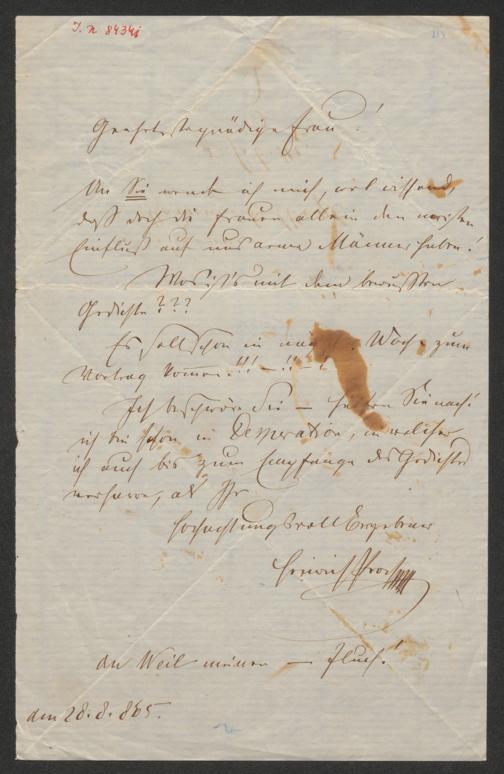 I. N 8434i
Geehrteste gnädige Frau!
An Sie wende ich mich, wol wissend,
daß doch die Frauen allein den meisten
Einfluß auf uns arme Männer haben!
Was ist's mit dem bewußten
Gedichte???
Es soll schon in Woche zum
Vortrag kommen!!! — !! — !
Ich beschwöre Sie — helfen Sie nach!
ich bin schon in Desperation, in welcher
ich auch bis zum Empfange des Gedichtes
verharre, als Ihr
hochachtungsvoll Ergebener
Heinrich Proch
an Weil meinen — Fluch!
den 28. 8. 865.